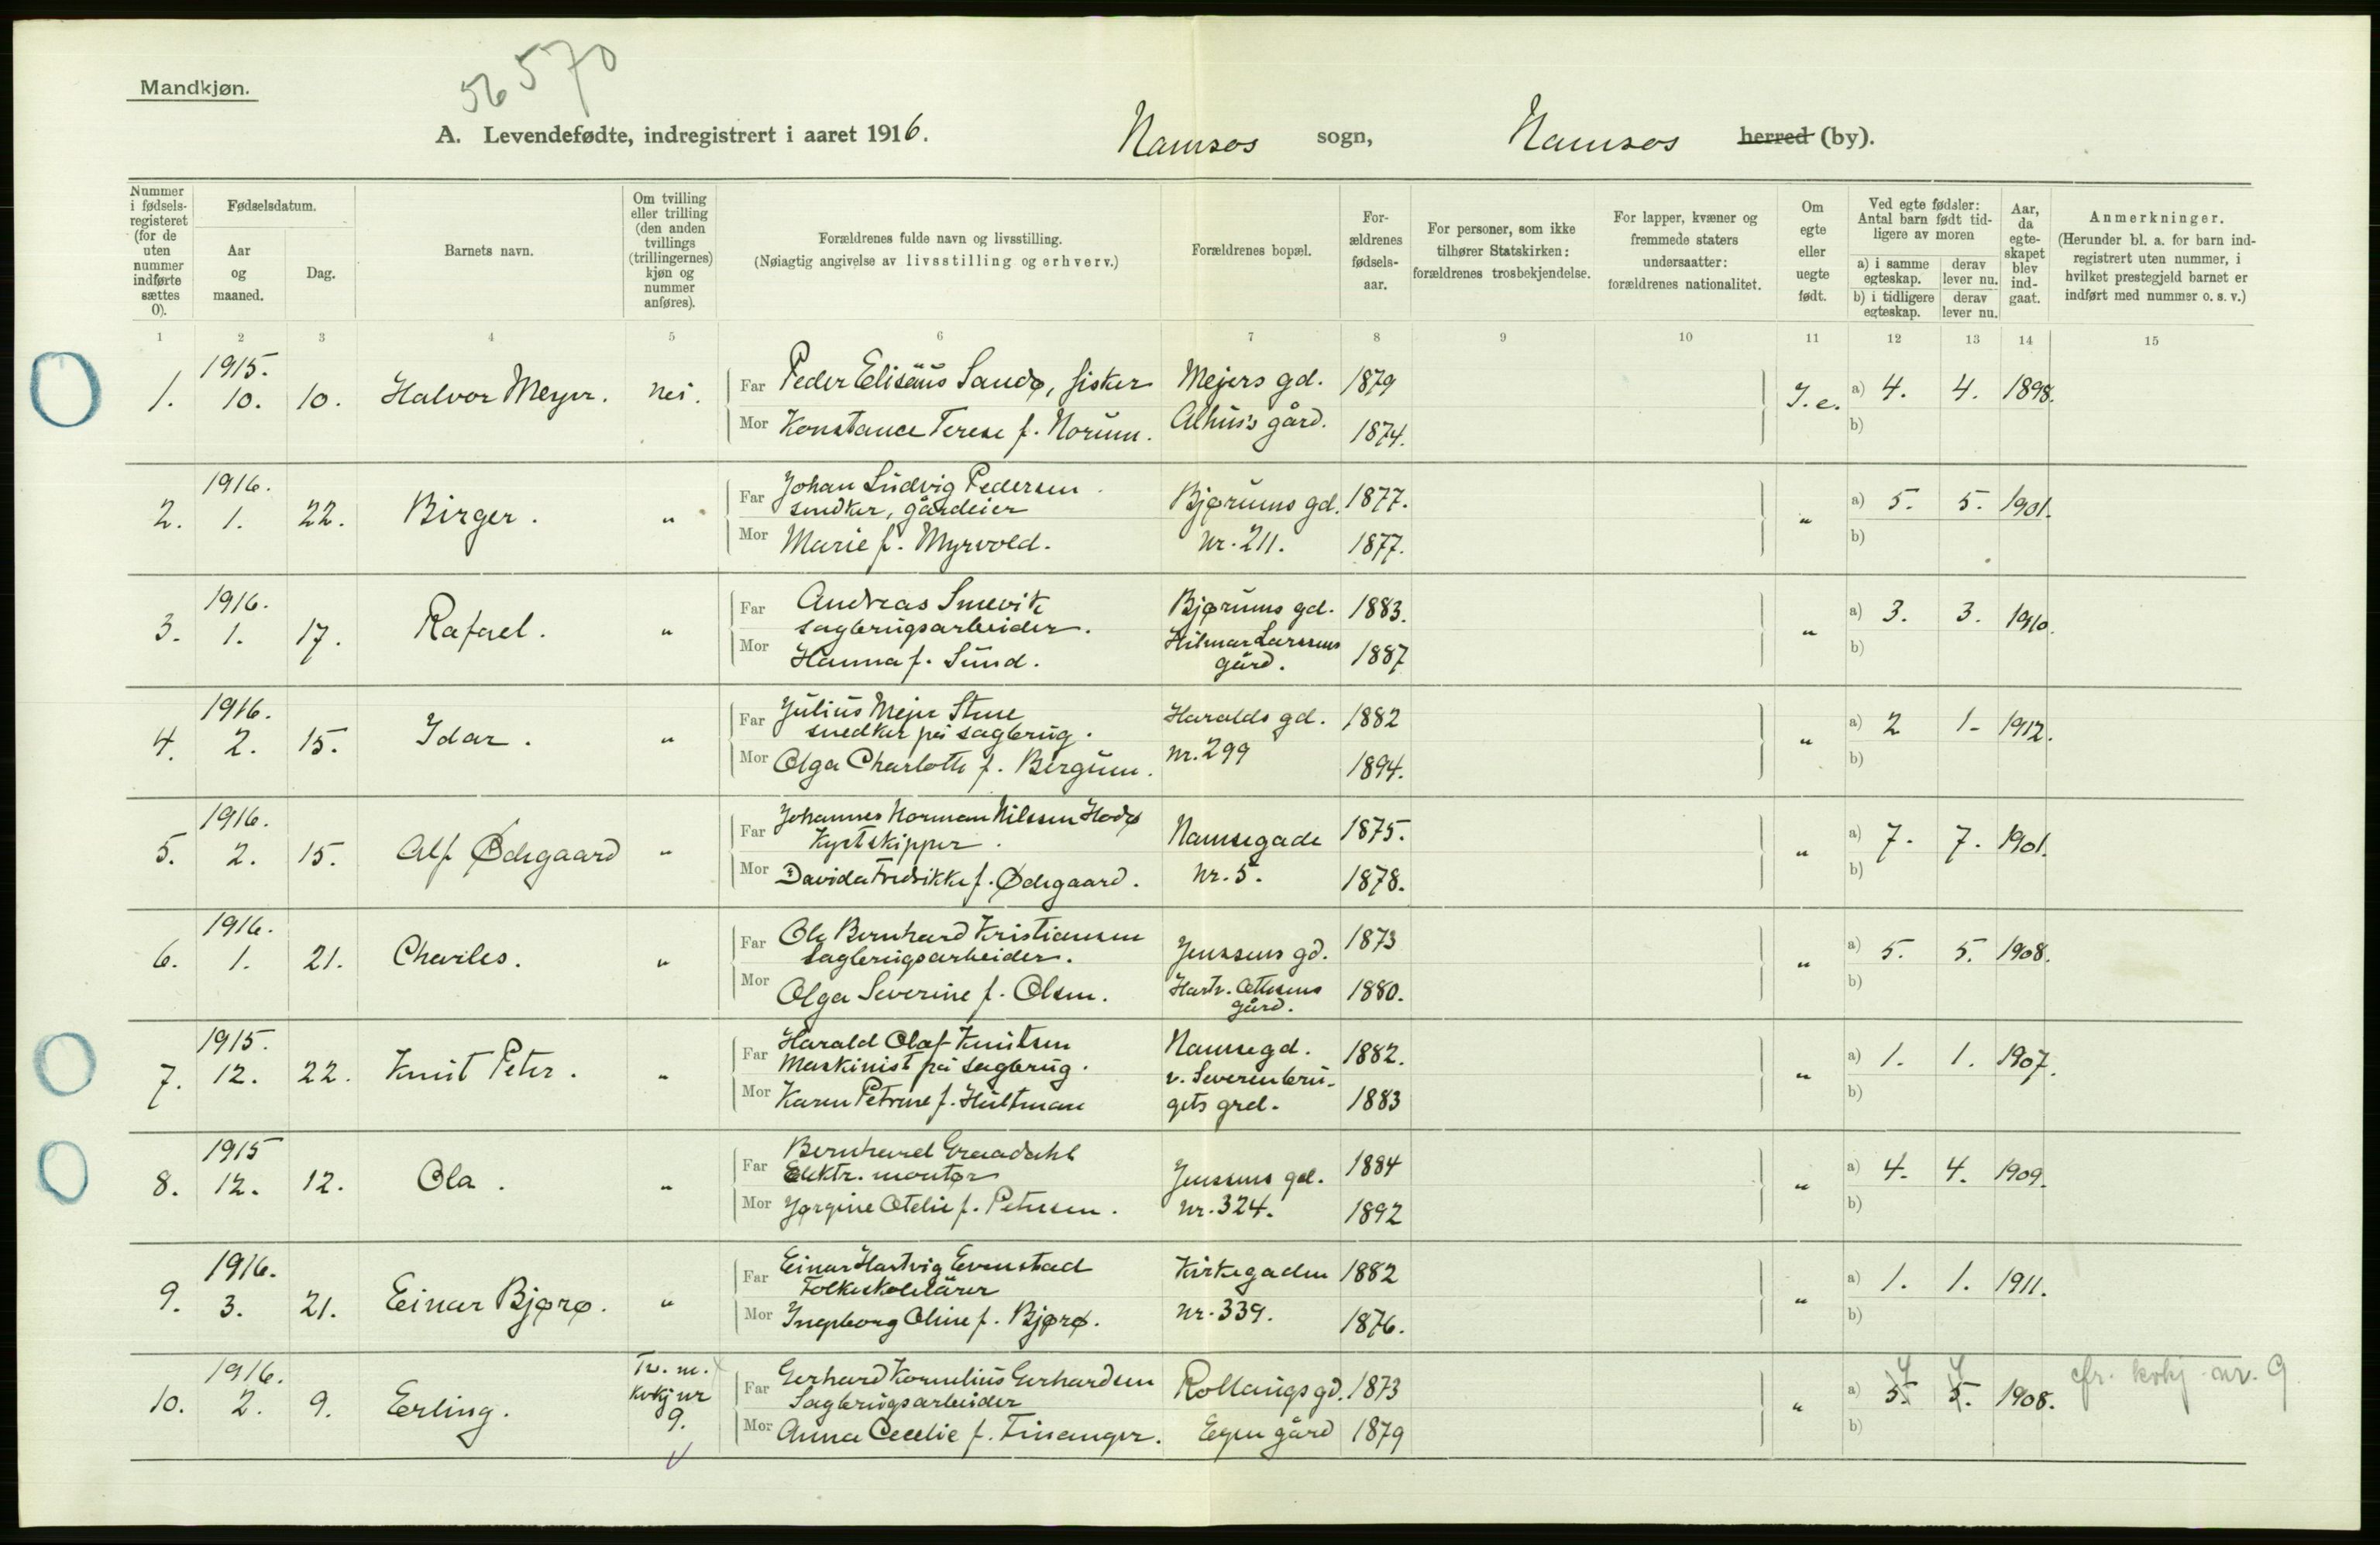 56570
Mandkjøn.
A. Levendefødte, indregistrert i aaret 1916. Namsos sogn, Namsos herred (by).
Nummer i fødsels-registeret (for de uten nummer indførte sættes 0).
Fødselsdatum.
Aar og maaned.
Dag.
Barnets navn.
Om tvilling eller trilling (den anden tvillings (trillingernes) kjøn og nummer anføres).
Forældrenes fulde navn og livsstilling.
(Nøiagtig angivelse av livsstilling og erhverv.)
Forældrenes bopæl.
For-ældrenes fødsels-aar.
For personer, som ikke tilhører Statskirken: forældrenes trosbekjendelse.
For lapper, kvæner og fremmede staters undersaatter: forældrenes nationalitet.
Om egte eller uegte født.
Ved egte fødsler: Antal barn født tid-ligere av moren
a) i samme egteskap. derav lever nu.
b) i tidligere egteskap. derav lever nu.
Aar, da egte-skapet blev ind-gaat.
Anmerkninger.
(Herunder bl. a. for barn ind-registrert uten nummer, i hvilket prestegjeld barnet er indført med nummer o. s. v.)
1 2 3 4 5 6 7 8 9 10 11 12 13 14 15
1915.
1. 10. 10. Halvor Meyer. nei. Far Peder Elisæus Sandø, fisker Mejers gd. 1879 I. e. a) 4. 4. 1898.
Mor Konstance Terese f. Norum. Alhus's gård. 1874. b)
1916.
2. 1. 22. Birger. " Far Johan Ludvig Pedersen
snedker, gårdeier Bjørums gd. 1877. " a) 5. 5. 1901.
Mor Marie f. Myrvold. nr. 211. 1877. b)
1916.
3. 1. 17. Rafael. " Far Andreas Smevik
sagbrugsarbeider. Bjørums gd. 1883. " a) 3. 3. 1910.
Mor Hanna f. Sund. Hilmar Larssens gård. 1887 b)
1916.
4. 2. 15. Idar. " Far Julius Mejer Stene
snedker på sagbrug. Haralds gd. 1882 " a) 2 1- 1912.
Mor Olga Charlotte f. Bergum. nr. 299 1894. b)
1916.
5. 2. 15. Alf Ødegaard " Far Johannes Norman Nilssen Hodø
Kystskipper. Namsegade 1875. " a) 7. 7. 1901.
Mor Davida Fredrikke f. Ødegaard. nr. 5. 1878. b)
1916.
6. 1. 21. Charles. " Far Ole Bernhard Kristiansen
sagbrugsarbeider. Jenssens gd. 1873 " a) 5. 5. 1908.
Mor Olga Severine f. Olsen. Hartv. Ottesens gård. 1880. b)
1915.
7. 12. 22. Knut Peter. " Far Harald Olaf Knutsen
Maskinist på sagbrug. Namsegd. 1882. " a) 1. 1. 1907.
v. Severenbru-
Mor Karen Petrine f. Hultman gets grd. 1883 b)
1915
8. 12. 12. Ola. " Far Bernhard Graadahl
Elektr. montør Jenssens gd. 1884 " a) 4. 4. 1909.
Mor Jørgine Otelie f. Petersen. nr. 324. 1892 b)
1916.
9. 3. 21. Einar Bjørø. " Far Einar Hartvig Evenstad
Folkeskolelärer Kirkegaden 1882 " a) 1. 1. 1911.
Mor Ingeborg Oline f. Bjørø. nr. 339. 1876. b)
1916.
10. 2. 9. Erling. Tv. m. kvkj nr 9. Far Gerhard Kornelius Gerhardsen
Sagbrugsarbeider Rollaugs gd. 1873 " a) 5. 4 5. 4 1908. cfr. kvkj. nr. 9
Mor Anna Cecelie f. Finanger. Egen gård 1879 b)